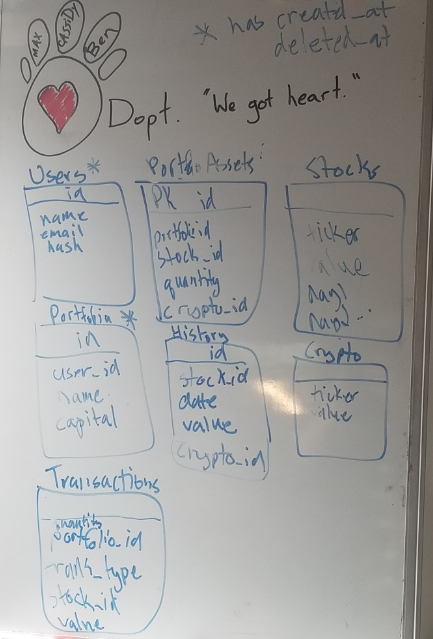 * has created_at
deleted_at
MAX
CASSIDY
Ben
Dopt. "We got heart."
Users *
id
name
email
hash
Portfolio Assets
PK id
portfolioid
stock_id
quantity
crypto_id
Stocks
ticker
value
Portfolio *
id
user_id
name
capital
History
id
stock_id
date
value
crypto_id
Crypto
ticker
value
Transactions
quantity
portfolio_id
trans_type
stock_id
value